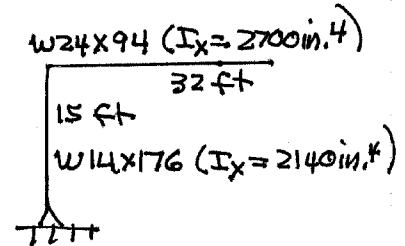 W24X94 (Ix=2700in.4)
32 ft
15 ft
W14X176 (Ix=2140in.4)